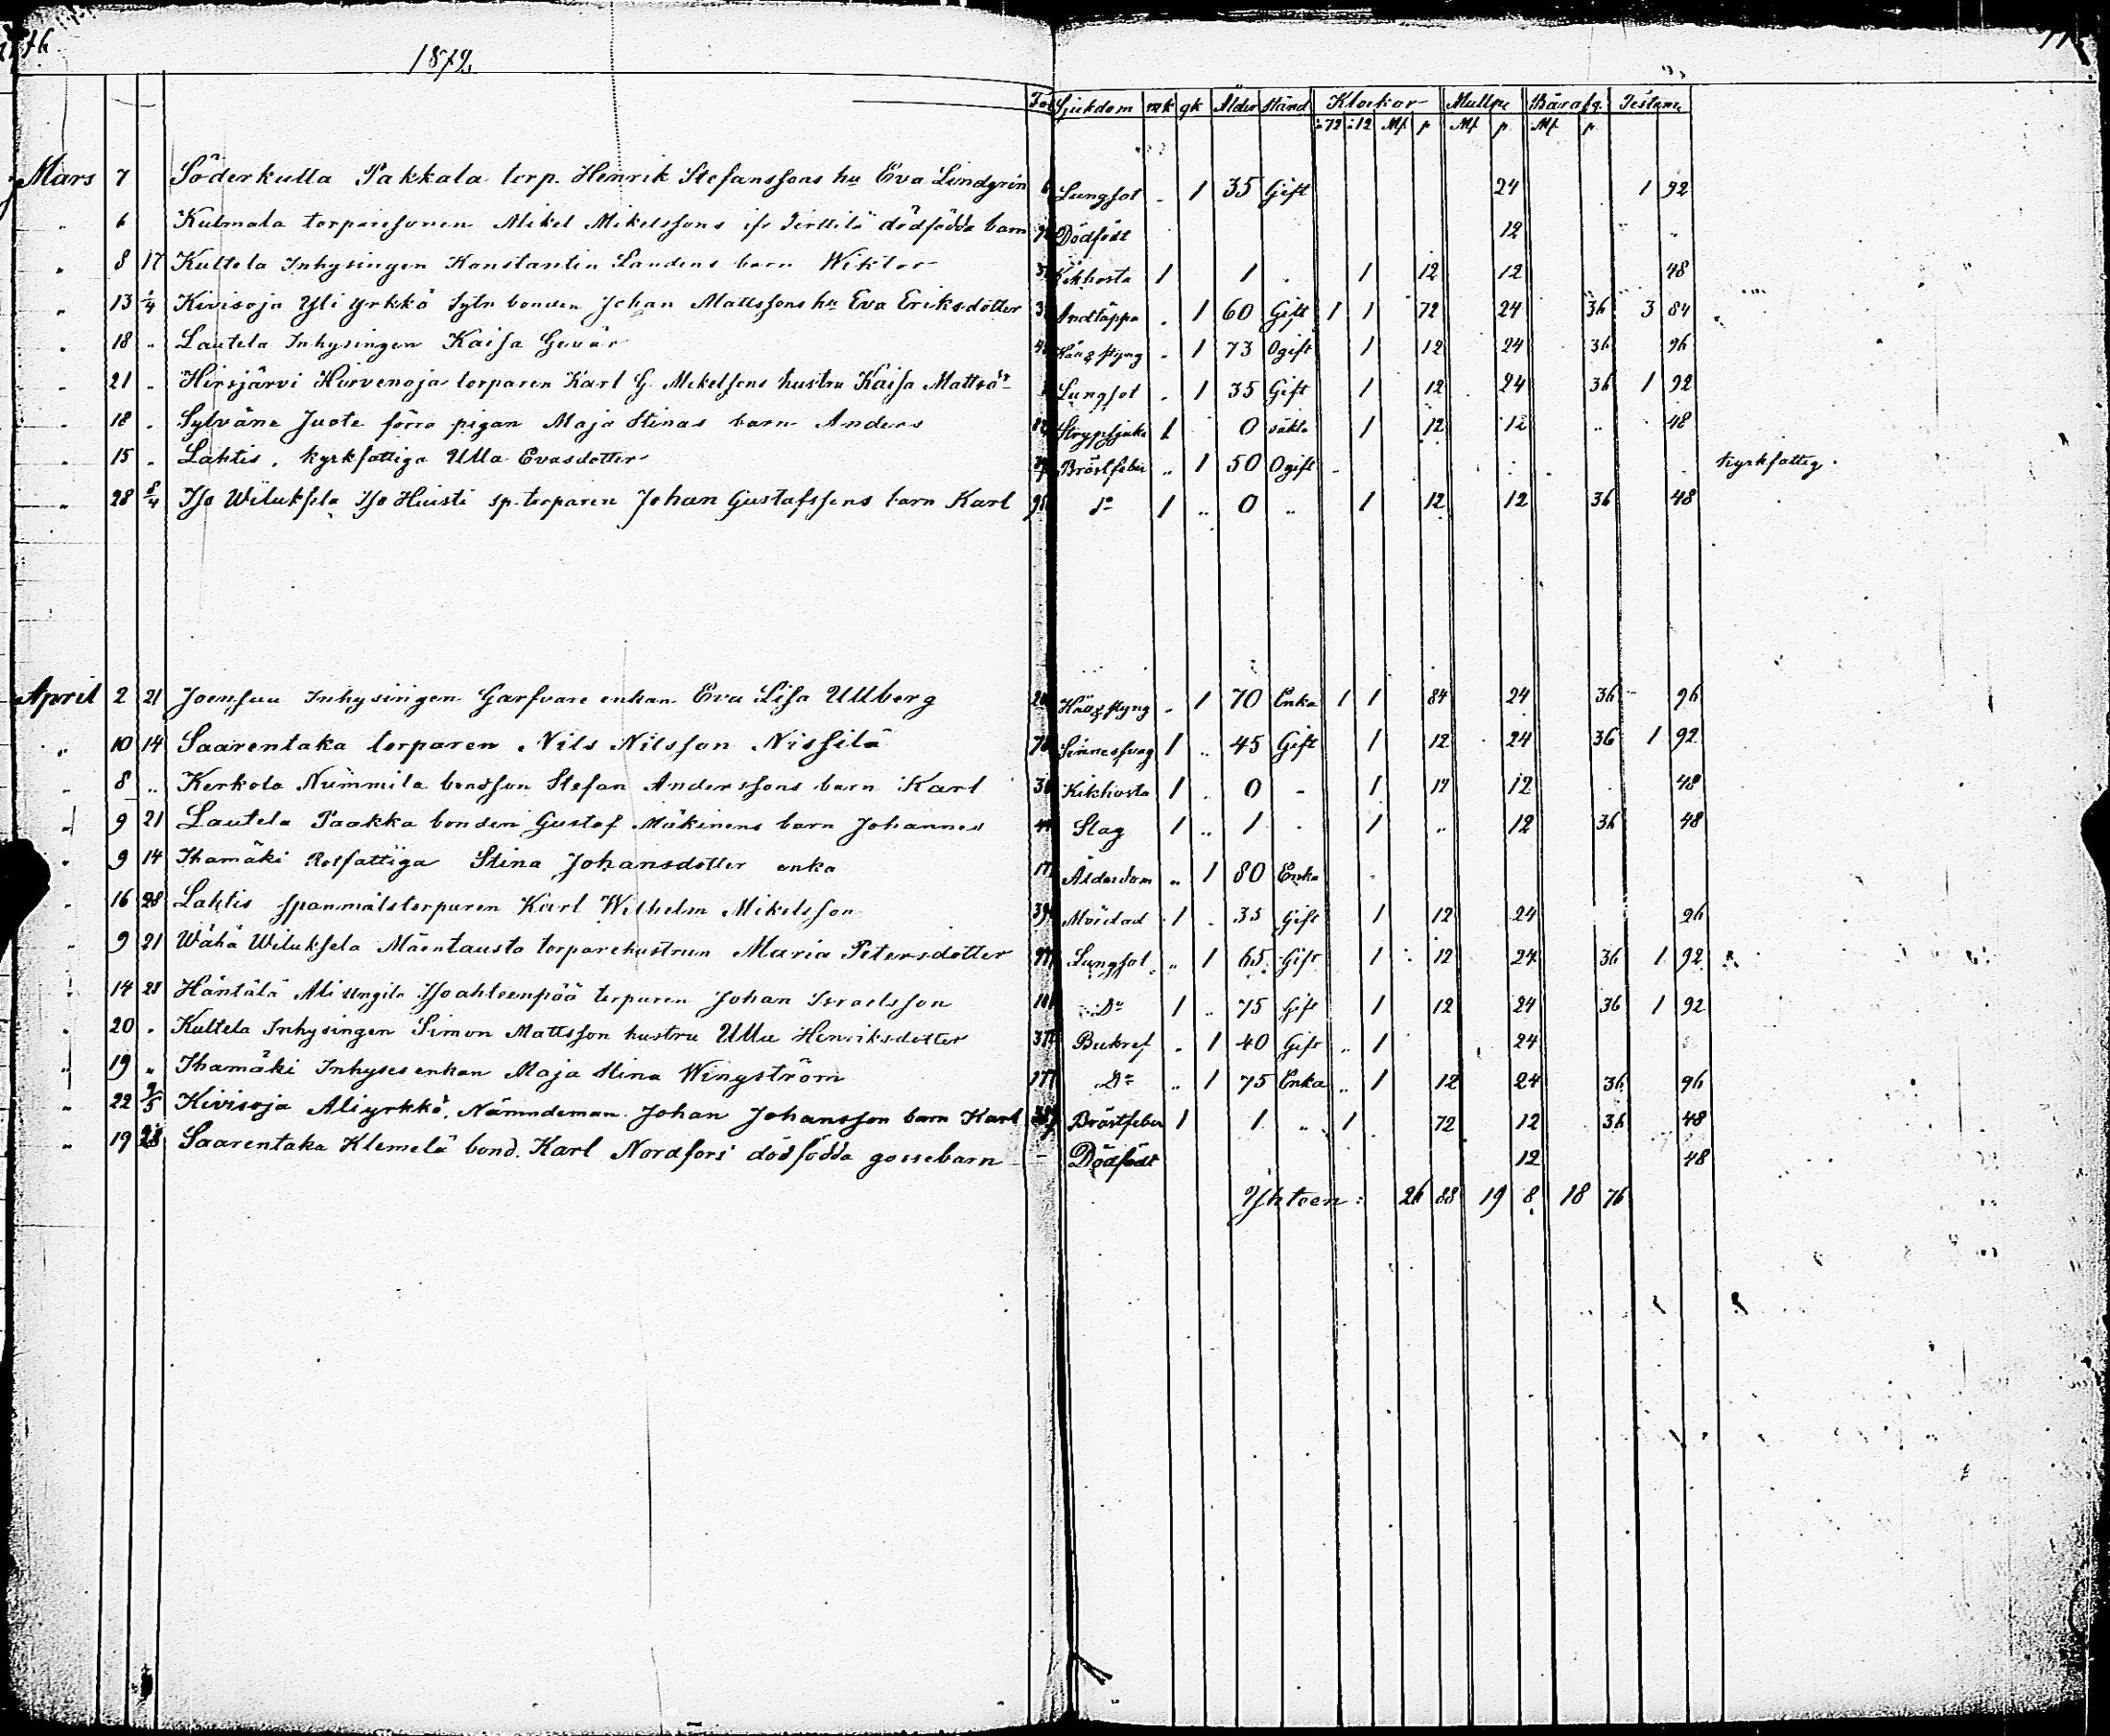 1872
Sjukdom mk qk Ålder stånd Klockor Mullpe Bårafg. Testame
:72 :12 Mk p Mk p Mk p
Mars 7 Söderkulla Pakkala torp. Henrik Stefanssons hu Eva Lindgrén Lungsot „ 1 35 Gift 24 1 92
„ 6 Kulmala torparesonen Mikel Mikelssons dödfödda barn Dödfödt 12
„ 8 17 Kultela Inhysingen Konstantin Landens barn Wiktor Kikhosta 1 1 1 12 12 48
„ 13 1/4 Kivisoja Yli Yrkkö Sytn bonden Johan Mattssons hu Eva Eriksdotter Andtäppa „ 1 60 Gift 1 1 72 24 36 3 84
„ 18 „ Lautela Inhysingen Kaisa Gevär Håll & styng „ 1 73 Ogift 1 12 24 36 96
„ 21 „ Hirsjärvi Hirvenoja torparen Karl G. Mikelsons hustru Kaisa Mattsdr Lungsot „ 1 35 Gift 1 12 24 36 1 92
„ 18 „ Sylväne Juote förra pigan Maja Stinas barn Anders Strypsjuka 1 0 oäkta 1 12 12 „ 48
„ 15 „ Lahtis, kyrkfattiga Ulla Evasdotter Bröstfeber „ 1 50 Ogift kyrkfattig.
„ 28 8/4 Iso Wiluksela Iso Huisti sp. torparen Johan Gustafssons barn Karl 96 Do 1 „ 0 „ 1 12 12 36 48
April 2 21 Joensuu Inhysingen Garfvare enkan Eva Lisa Ullberg Håll & styng „ 1 70 Enka 1 1 84 24 36 96
„ 10 14 Saarentaka torparen Nils Nilsson Nissilä Sinnessvag 1 „ 45 Gift 1 12 24 36 1 92
„ 8 „ Kerkola Nummila bondson Stefan Anderssons barn Karl Kikhosta 1 „ 0 „ 1 12 12 48
„ 9 21 Lautela Paakka bonden Gustaf Mäkinens barn Johannes Slag 1 „ 1 „ 1 „ 12 36 48
„ 9 14 Ihamäki Rotfattiga Stina Johansdotter enka 177 Ålderdom „ 1 80 Enka
„ 16 28 Lahtis spanmålstorparen Karl Wilhelm Mikelsson Mördad 1 „ 35 Gift 1 12 24 96
„ 9 21 Wähä Wiluksela Mäentausta torparehustrun Maria Petersdotter Lungsot „ 1 65 Gift 1 12 24 36 1 92
„ 14 28 Häntälä Ali Ungila Isoahteenpää torparen Johan Israelsson Do 1 „ 75 Gift 1 12 24 36 1 92
„ 20 „ Kultela Inhysingen Simon Mattsson hustru Ulla Henriksdotter Bukref „ 1 40 Gift „ 1 24
„ 19 „ Ihamäki Inhyses enkan Maja Stina Wingström 177 Do „ 1 75 Enka „ 1 12 24 36 96
„ 22 9/5 Kivisoja Aliyrkkö, Nämndeman Johan Johansson barn Karl Bröstfeber 1 1 „ 1 72 12 36 48
„ 19 28 Saarentaka Klemelä bond. Karl Nordfors dödfödda gossebarn – Dödfödt 12 48
Yhteen: 26 88 19 8 18 76